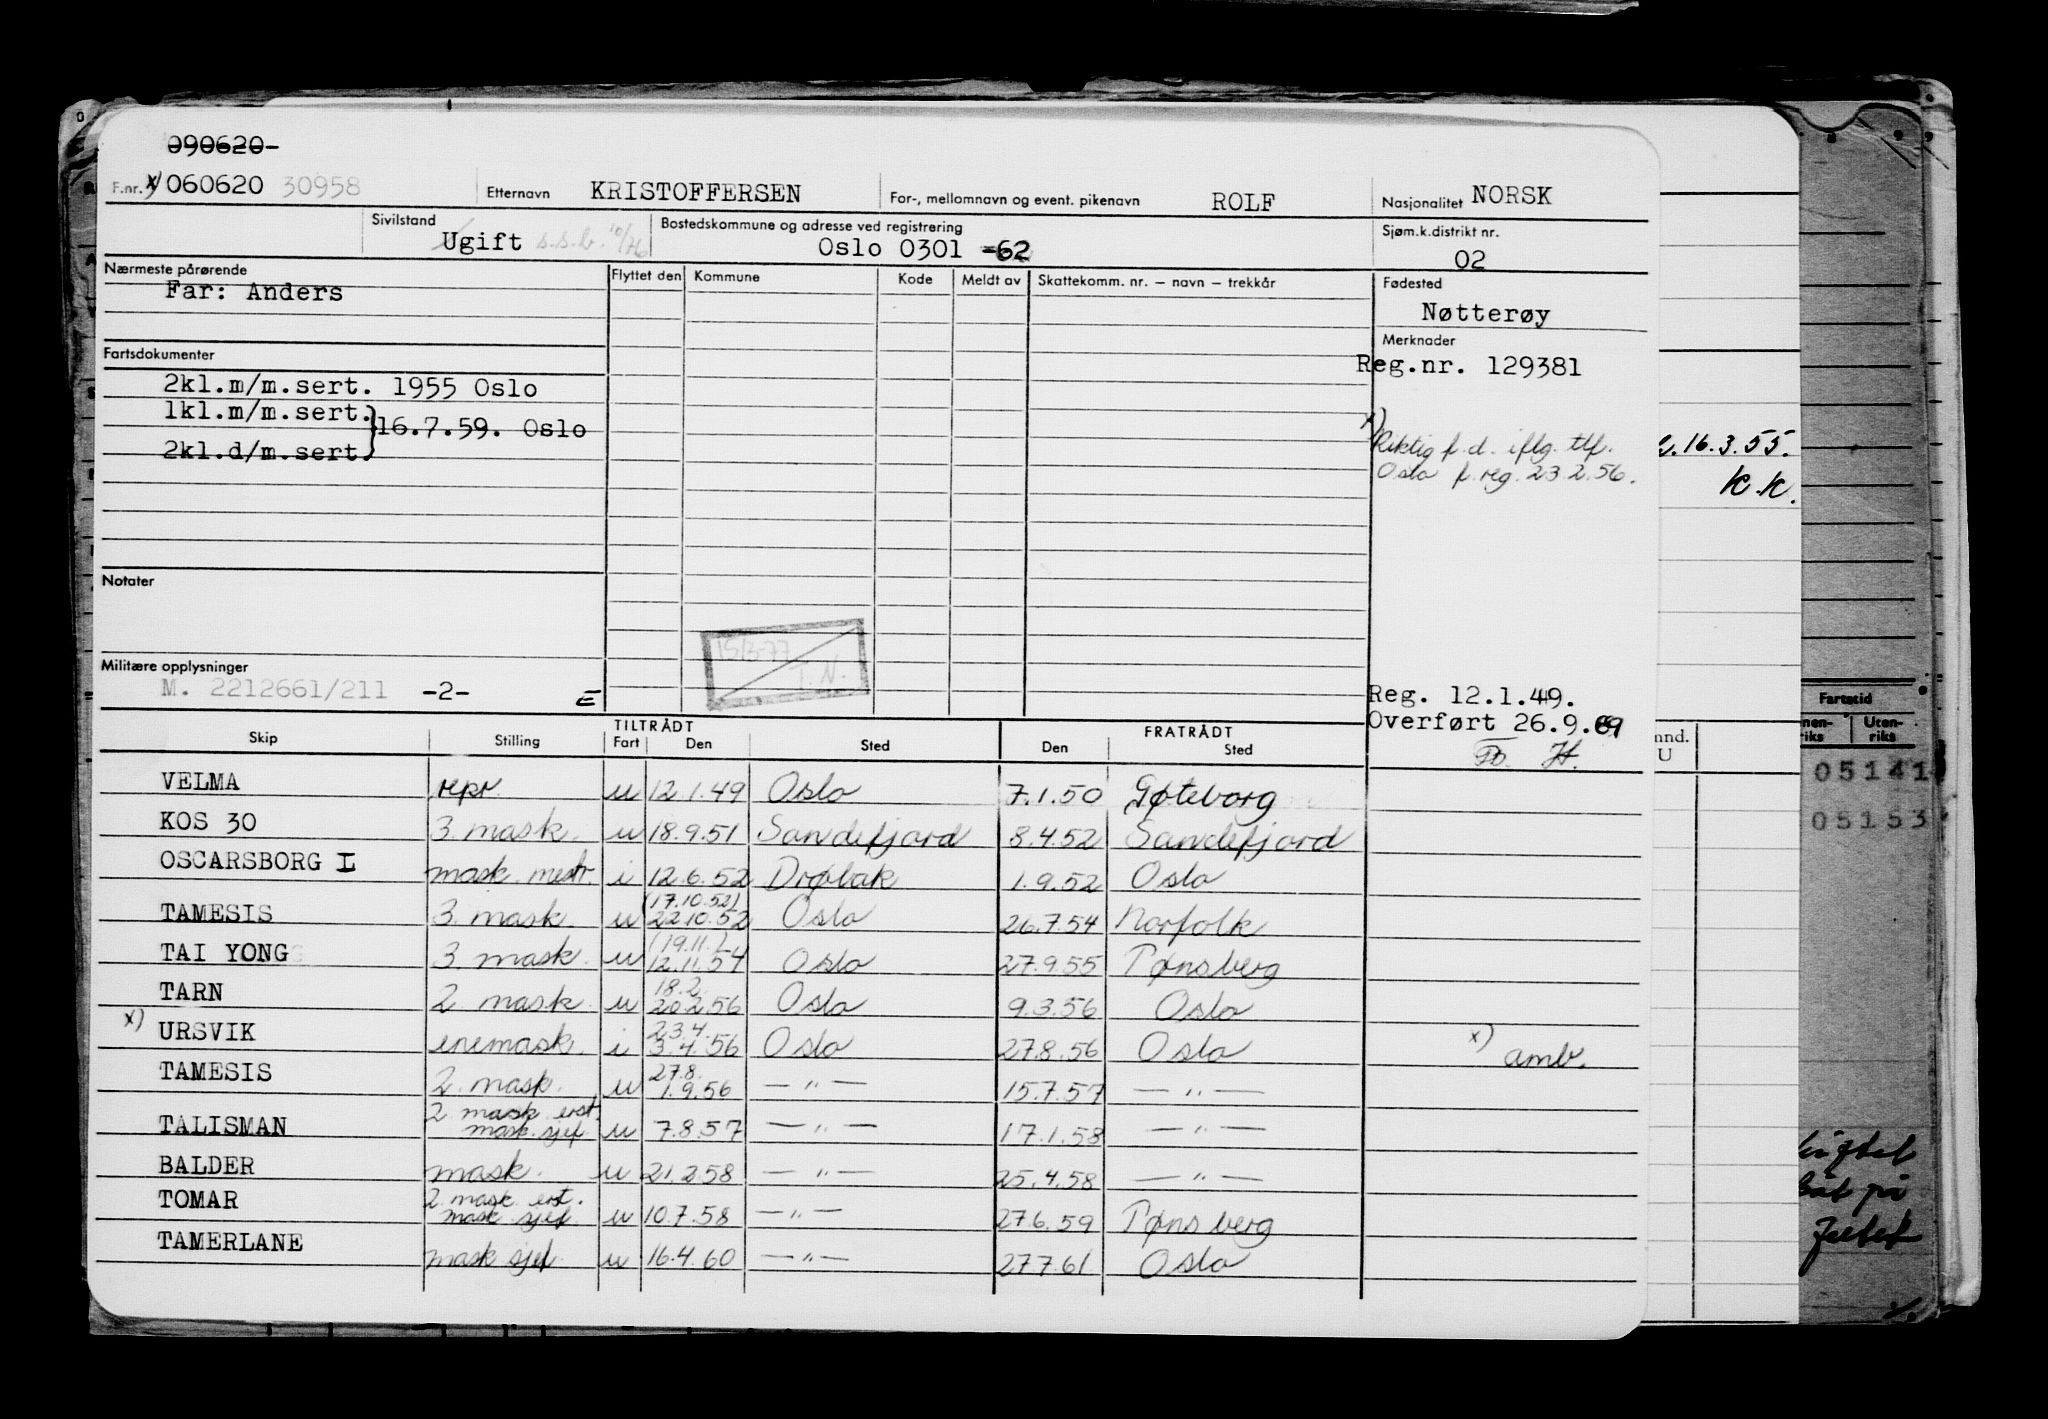 090620-
F.nr. x) 060620 30958 Etternavn KRISTOFFERSEN For-, mellomnavn og event. pikenavn ROLF Nasjonalitet NORSK
Sivilstand Ugift s.s.b. 10/76 Bostedskommune og adresse ved registrering Oslo 0301 -62 Sjøm.k.distrikt nr. 02
Nærmeste pårørende Flyttet den Kommune Kode Meldt av Skattekomm. nr. – navn – trekkår Fødested
Far: Anders Nøtterøy
Merknader
Fartsdokumenter Reg.nr. 129381
2kl.m/m.sert. 1955 Oslo
1kl.m/m.sert.
16.7.59. Oslo
2kl.d/m.sert
x) Riktig f.d. iflg. tlf.
Oslo f.reg. 23.2.56.
16.3.55.
K.K.
Notater
15/3-77
T.N.
Militære opplysninger
M. 2212661/211 -2- E
Reg. 12.1.49.
Overført 26.9.69
H.
Skip Stilling TILTRÅDT Fart Den Sted FRATRÅDT Den Sted
VELMA repr u 12.1.49 Oslo 7.1.50 Gøteborg
KOS 30 3. mask. u 18.9.51 Sandefjord 8.4.52 Sandefjord
OSCARSBORG I mask. mestr. i 12.6.52 Drøbak 1.9.52 Oslo
TAMESIS 3. mask. u (17.10.52) 22.10.52 Oslo 26.7.54 Norfolk
TAI YONG 3. mask. u (19.11.) 12.11.54 Oslo 27.9.55 Tønsberg
TARN 2. mask. u 18.2. 20.2.56 Oslo 9.3.56 Oslo
x) URSVIK enemask. i 23.4. 3.4.56 Oslo 27.8.56 Oslo x) amb.
TAMESIS 2. mask. u 27.8. 1.9.56 — " — 15.7.57 — " —
TALISMAN 2. mask erst. mask. sjef u 7.8.57 — " — 17.1.58 — " —
BALDER mask. u 21.2.58 — " — 25.4.58 — " —
TOMAR 2. mask erst. mask sjef u 10.7.58 — " — 27.6.59 Tønsberg
TAMERLANE mask sjef u 16.4.60 — " — 27.7.61 Oslo
mnd.
U
Fartstid
Uten-
riks
05141
05153